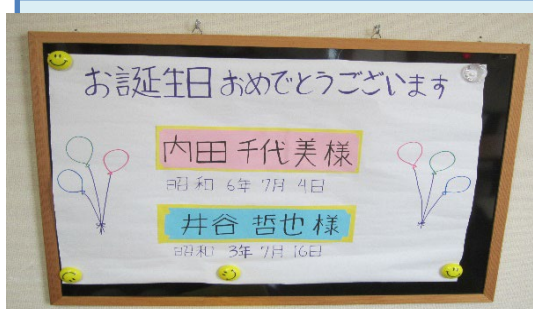 お誕生日おめでとうございます
内田千代美様
昭和 6年 7月 4日
井谷 哲也様
昭和 3年 7月 16日